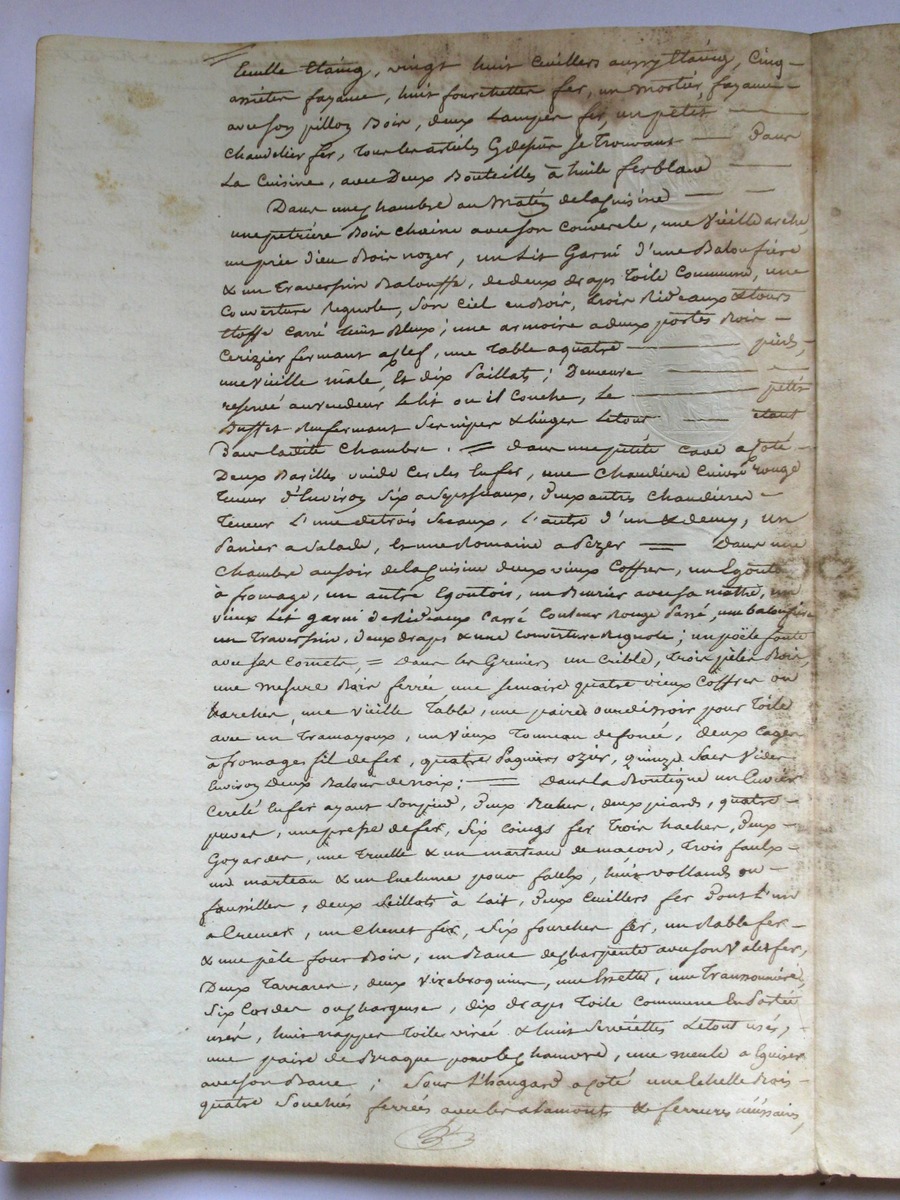 feuille Etaing, vingt huit Ceuillers aussy Etaing, Cinq
assietes fayance, huit fourchettes fer, un mortier fayance
avec son pillon Bois, deux Lampes fer, un petit
Chandelier fer, tous les articles Cydessus se trouvant dans
La Cuisine, avec Deux Bouteilles à huile ferblanc
Dans une chambre au Matin de la Cuisine
une petriere Bois chaine avec son Couvercle, une Vieille arche,
un prie dieu Bois noyer, un Lit Garni d'une Baloufiere
& un Traversin Balouffe, de deux draps Toile Commune, une
Couverture Cignole, son ciel en Bois, trois Rideaux & tours
Etoffe Carré Bleux; une armoire a deux portes Bois
Cerizier fermant a Clef, une Table a quatre pieds,
une vieille male, Et dix Paillats; Demeure
reservé au vendeur le lit ou il Couche, Le petit
Buffet Renfermant ses nipes & linges Le tout etant
Dans ladite Chambre. = Dans une petite Cave a Coté
Deux Barilles vuide Cercles En fer, une Chaudiere Cuivre rouge
Teneur d'Environ Six a Sept seaux, Deux autres Chaudieres
Teneur L'une de trois Seaux, L'autre d'un & demy, un
Panier a Salade, Et une Romaine a Pezer = Dans une
Chambre au soir de la Cuisine deux vieux Coffres, un Egoutoir
à fromage, un autre Egoutois, un Burier avec sa matte, un
vieux Lit garni de Rideaux Carré Couleur Rouge Passé, une baloufiere
un Traversin, deux draps & une couverture Cignole; un poële fonte
avec ses Cornets, = Dans les Greniers un Crible, trois pèles Bois,
une Mesure Bois ferrée, une semaire quatre vieux Coffres ou
Harches, une vieille Table, une paire ourdissoir pour Toile
avec un Tramayoux, un vieux Tonneau defoncé, deux Cages
à fromages fil de fer, quatre Paguiers ozier, quinze Sacs Vides
Environ deux Balous de noix; = Dans la Boutique un Cuvier
Cerclé En fer ayant Son pied, deux Ruches, deux piards, quatre
, une presse de fer, Six Coings fer Trois haches, Deux
Goyardes, une Truelle & un marteau de macon, trois faulx
un marteau & un Enclume pour faulx, huit vollands ou
faucilles, deux Seillots à Lait, Deux Ceuillers fer Dont L'un
a Cremer, un Chenet fer, Six fourches fer, un Rable fer
& une pèle four Bois, un Banc de Charpente avec son Valet fer,
Deux Tarrares, deux Virebroquins, une Essette, une Tranconniere,
Six Cordes ou Chargeuse, dix draps Toile Commune En Partie
usés, huit nappes Toile virée & huit Serviettes Le tout usés,
une paire de Braque pour le Chanvre, une meule a Eguiser
avec son Banc; Sous L'hangard a Coté une Echelle Bois
quatre ferrées avec les & ferrures nécessaires,